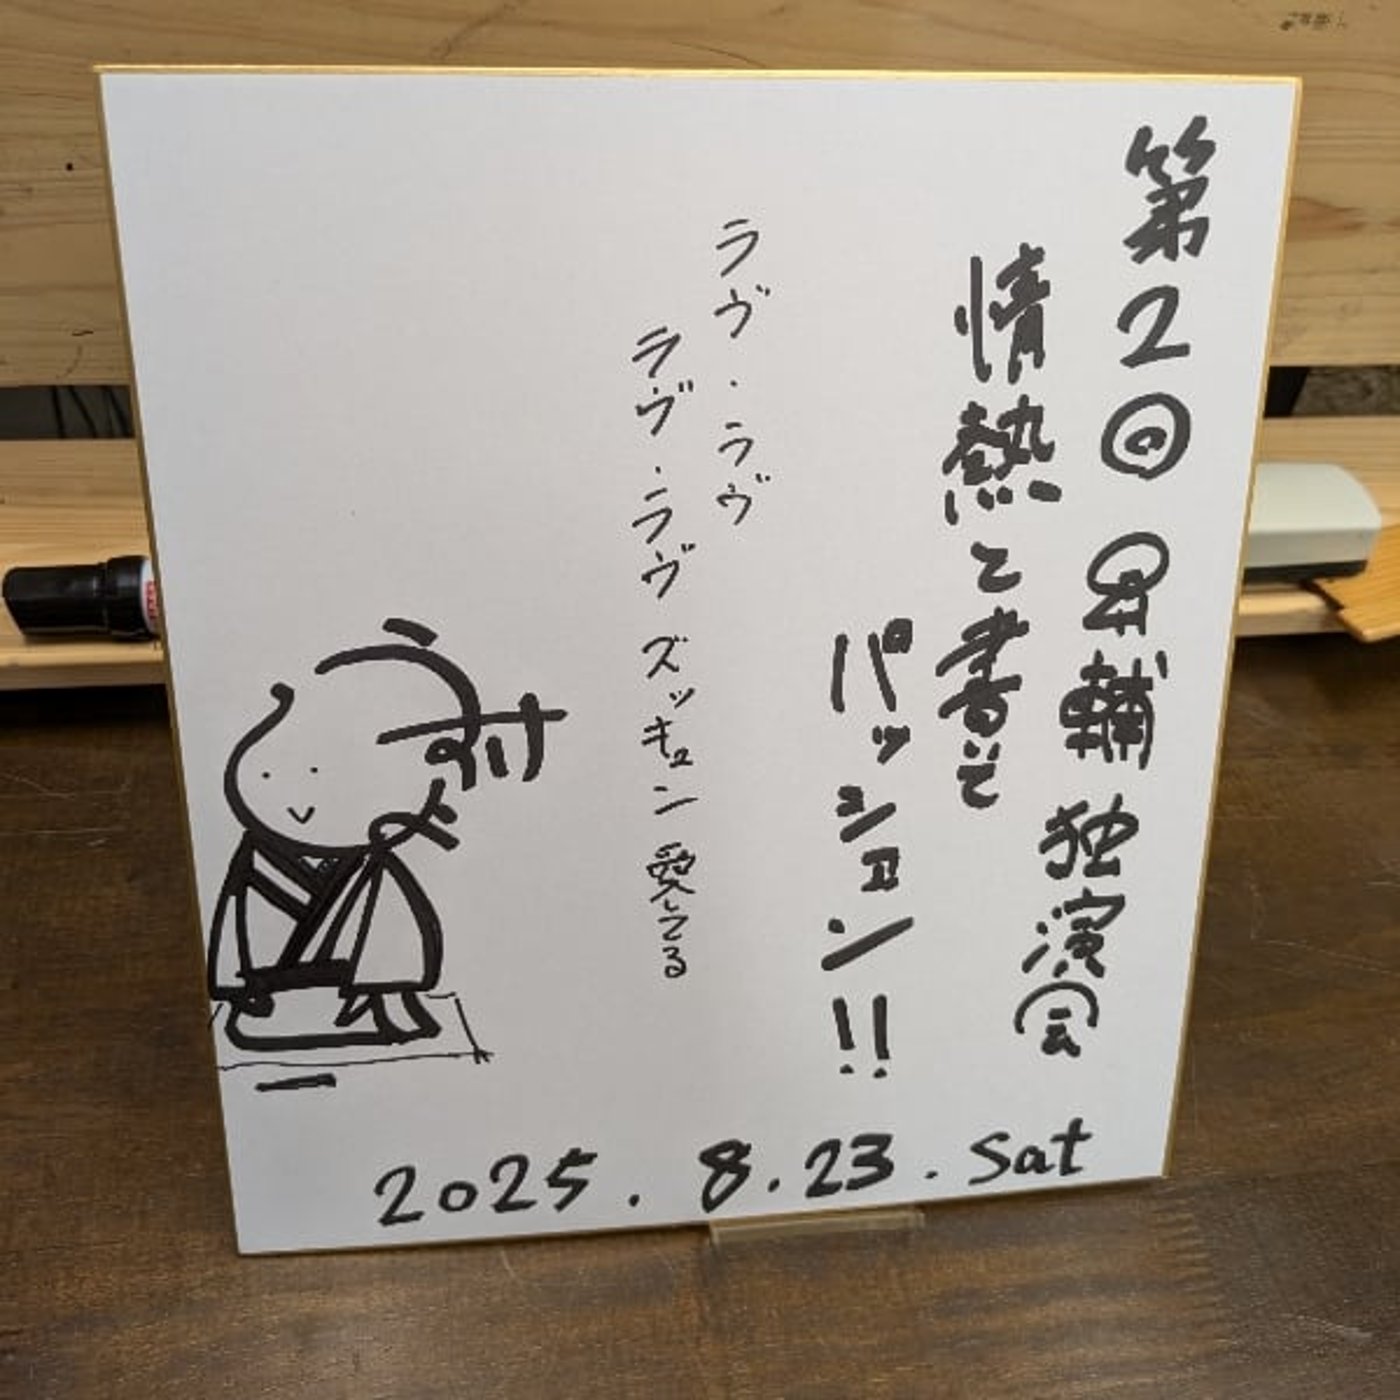 第2回 昇輔 独演会
情熱と書いて
パッション!!
ラヴ・ラヴ
ラヴ・ラヴ ズッキュン 愛してる
2025.8.23.Sat